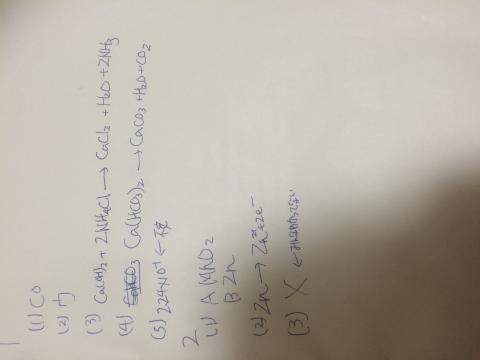 1
(1) CO
(2) ウ
(3) Ca(OH)2 + 2NH4Cl → CaCl2 + H2O + 2NH3
(4) Ca(HCO3)2 → CaCO3 + H2O + CO2
(5) 224×10⁻¹ ←
2
(1) A MnO2
B Zn
(2) Zn → Zn²⁺ + 2e⁻
(3) X ←